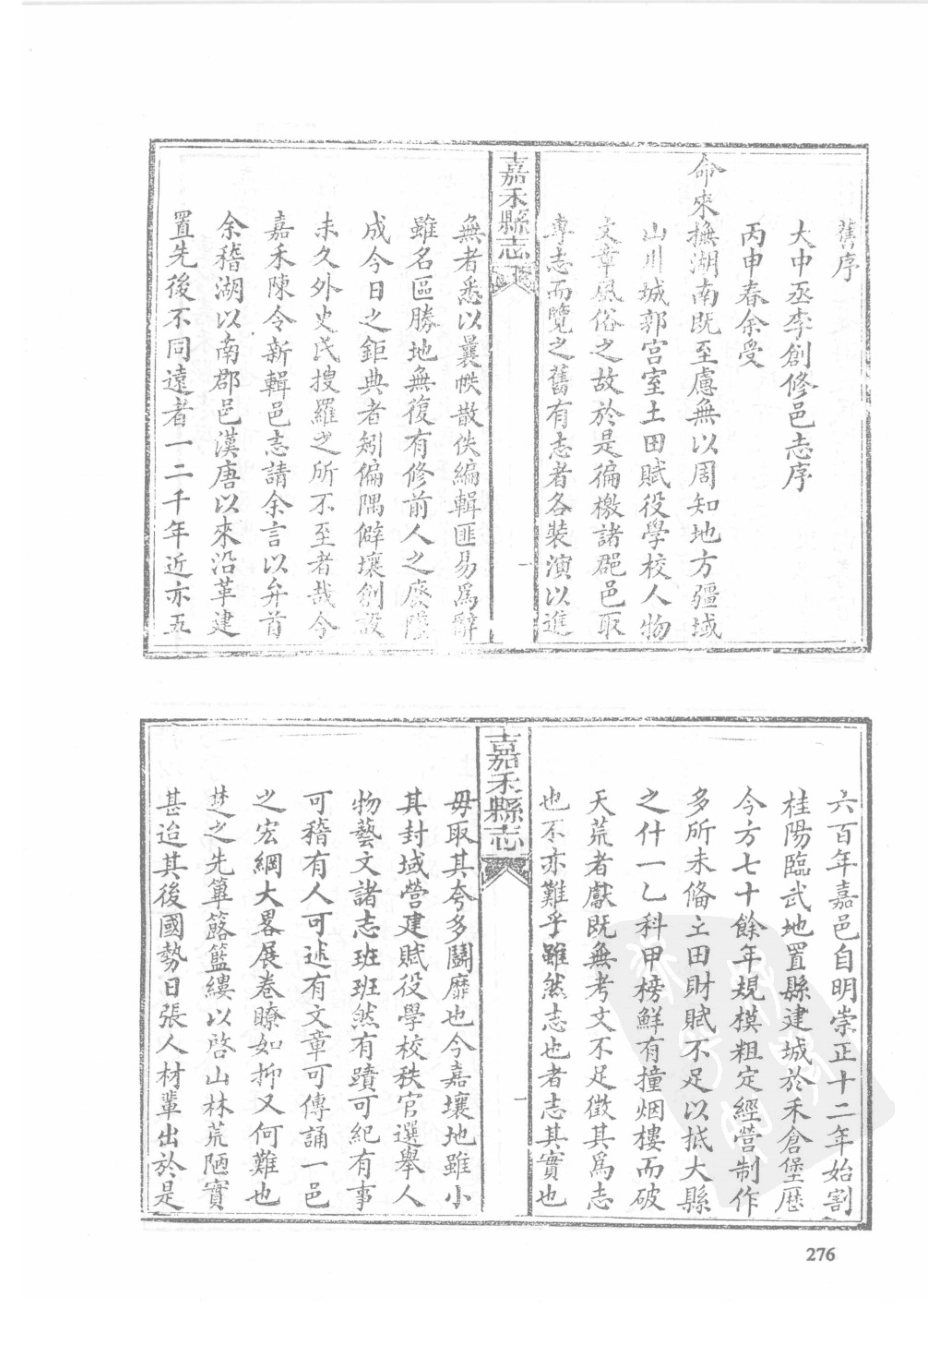 舊序
大中丞李創修邑志序
丙申春余受
命來撫湖南既至慮無以周知地方疆域
山川城郭宫室土田賦役學校人物
文章風俗之故於是徧檄諸郡邑取
專志而覽之舊有志者各裝演以進
嘉禾縣志
一
無者悉以曩帙散佚編輯匪易爲辭
雖名區勝地無復有修前人之廢墜
成今日之鉅典者矧偏隅僻壤創設
未久外史氏搜羅之所不至者哉今
嘉禾陳令新輯邑志請余言以弁首
余稽湖以南郡邑漢唐以來沿革建
置先後不同遠者一二千年近亦五
六百年嘉邑自明崇正十二年始割
桂陽臨武地置縣建城於禾倉堡歷
今方七十餘年規模粗定經營制作
多所未俻土田財賦不足以抵大縣
之什一乙科甲榜鮮有撞烟樓而破
天荒者獻既無考文不足徵其爲志
也不亦難乎雖然志也者志其實也
嘉禾縣志
一
毋取其夸多鬬靡也今嘉壤地雖小
其封域營建賦役學校秩官選舉人
物藝文諸志班班然有蹟可紀有事
可稽有人可述有文章可傳誦一邑
之宏綱大畧展卷瞭如抑又何難也
楚之先篳簬籃縷以啓山林荒陋實
甚迨其後國勢日張人材輩出於是
276